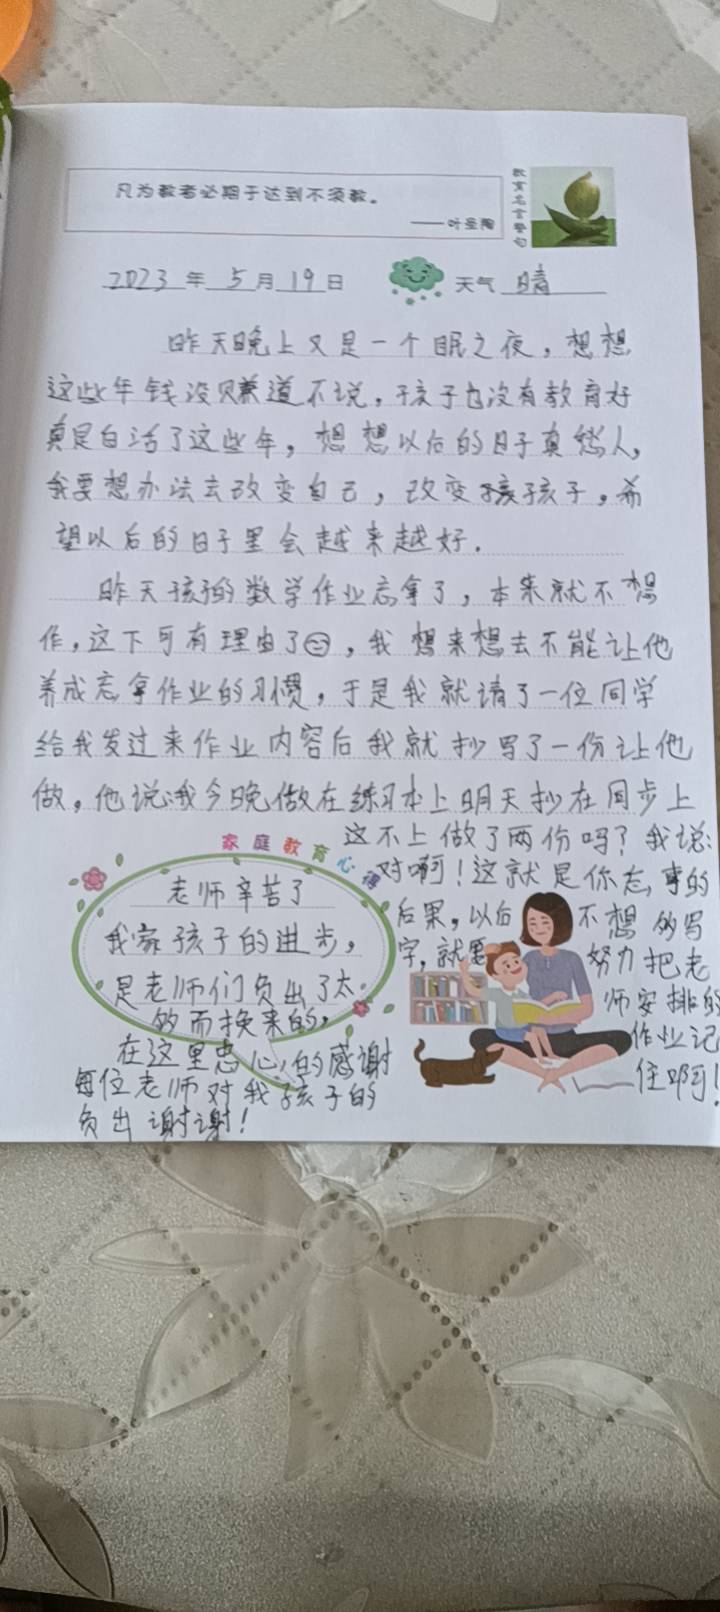 凡为教者必期于达到不须教。
——叶圣陶
教育名言警句
2023年5月19日 天气 晴
昨天晚上又是一个眠之夜，想想
这些年钱没赚道不说，孩子也没有教育好
真是白活了这些年，想想以后的日子真愁人，
我要想办法去改变自己，改变孩子，希
望以后的日子里会越来越好.
昨天孩子的数学作业忘拿了，本来就不想
作，这下可有理由了，我想来想去不能让他
养成忘拿作业的习惯，于是我就请了一位同学
给我发过来作业内容后我就抄写了一份让他
做，他说:我今晚做在练习本上明天抄在同步上
这不上做了两份吗？我说:
对啊！这就是你忘事的
后果，以后不想多写
字，就要努力把老
师安排的
作业记
住啊！
家庭教育心得
老师辛苦了
我家孩子的进步，
是老师们负出了太
多而换来的，
在这里忠心的感谢
每位老师对我孩子的
负出谢谢！